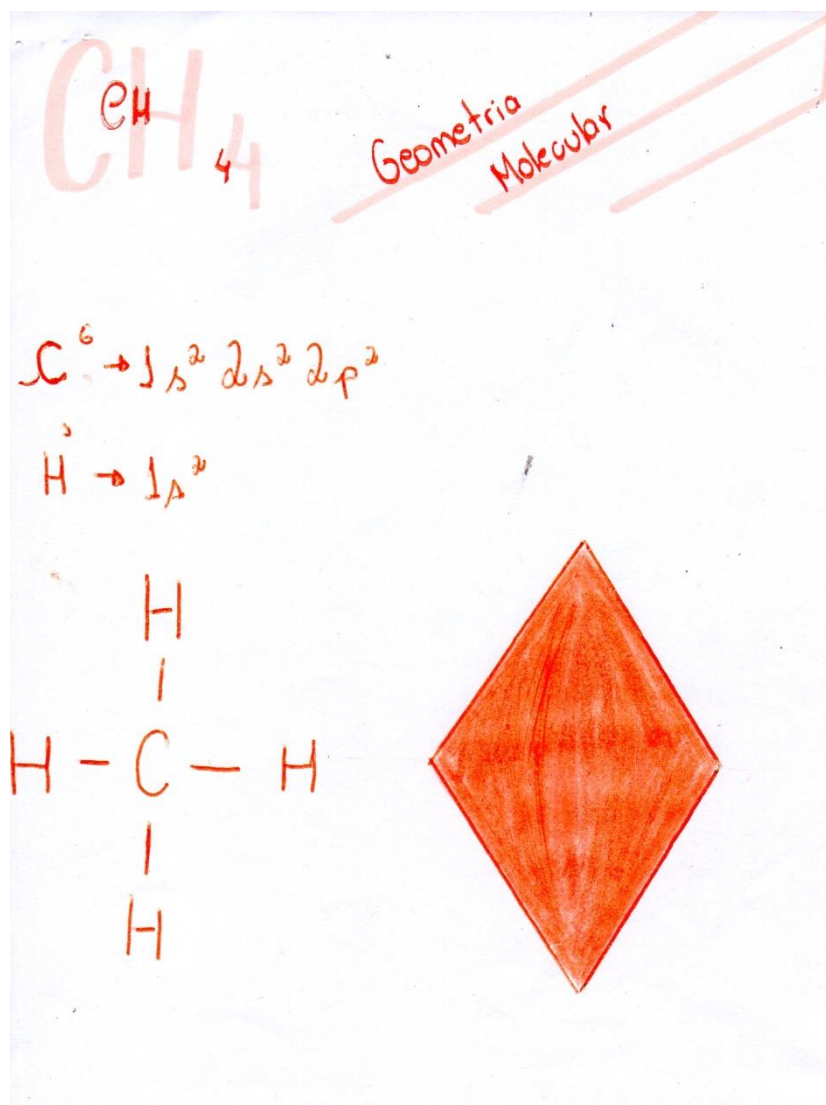 CH4
CH4
Geometria
Molecular
C⁶ → 1s² 2s² 2p²
H → 1s²
H
H - C - H
H